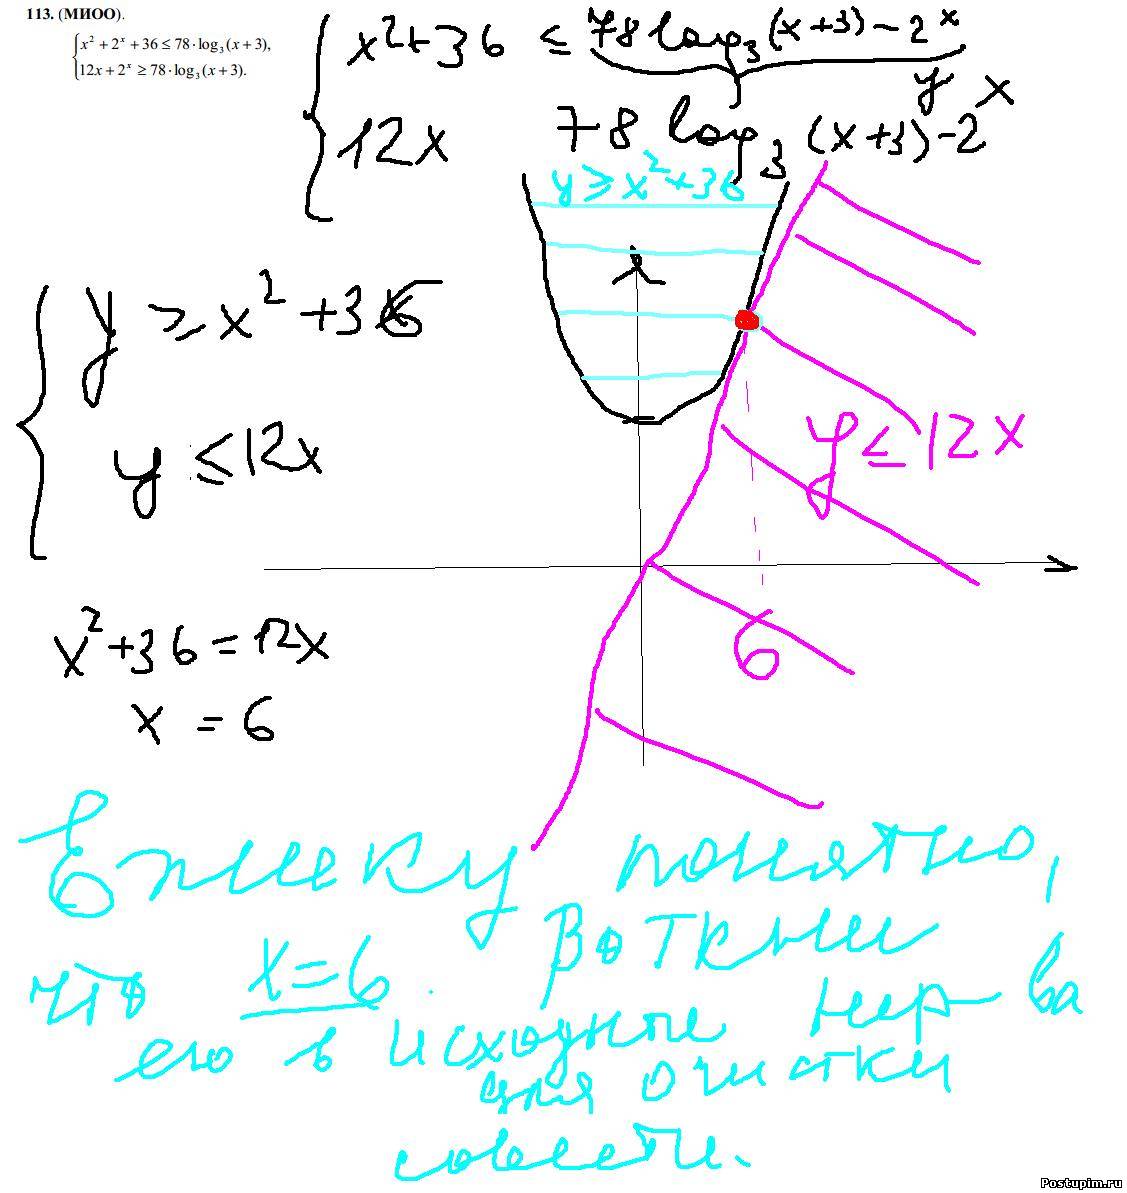 113. (МИОО).
x² + 2ˣ + 36 ≤ 78·log₃(x + 3),
12x + 2ˣ ≥ 78·log₃(x + 3).
x² + 36 ≤ 78 log₃(x+3) - 2ˣ
y
12x 78 log₃(x+3) - 2ˣ
y ≥ x² + 36
y ≥ x² + 36
y ≤ 12x
y ≤ 12x
6
x² + 36 = 12x
x = 6
Ёжику понятно,
что x = 6. Воткни
его в исходные нер-ва
для очистки
совести.
Postupim.ru